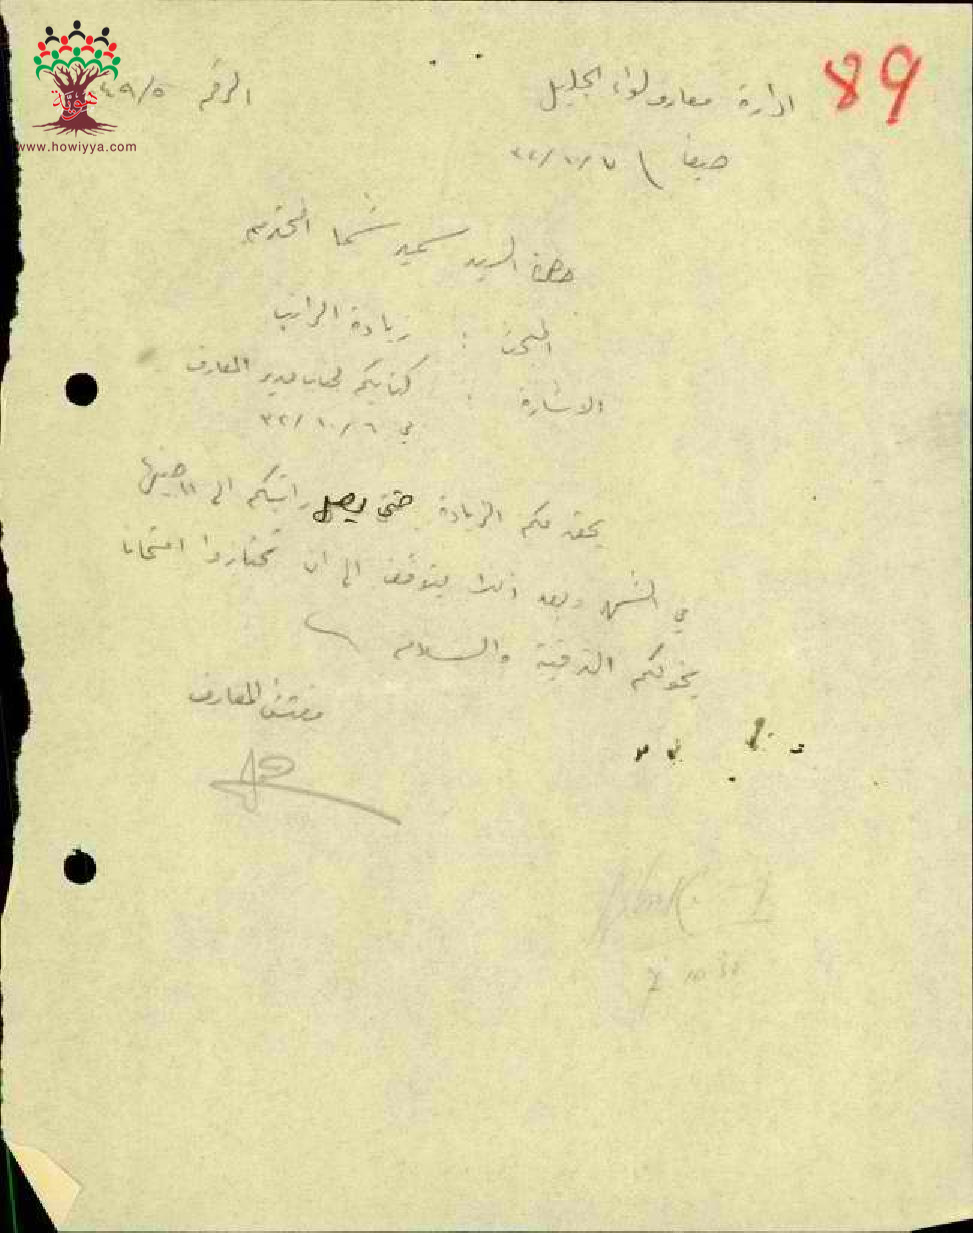 89
ادارة معارف لواء الجليل
الرقم ٤٩/٥
حيفا ٧/١٠/٣٢
هوية
www.howiyya.com
حضرة السيد سعيد شما المحترم
المبحث : زيادة الراتب
الاشارة : كتابكم لجناب مدير المعارف
في ٦/١٠/٣٢
يحق لكم الزيادة حتى يصل راتبكم الى ١١ جنيها
في الشهر وبعد ذلك يتوقف الى ان تجتازوا امتحانا
يخولكم الترقية والسلام
مفتش المعارف